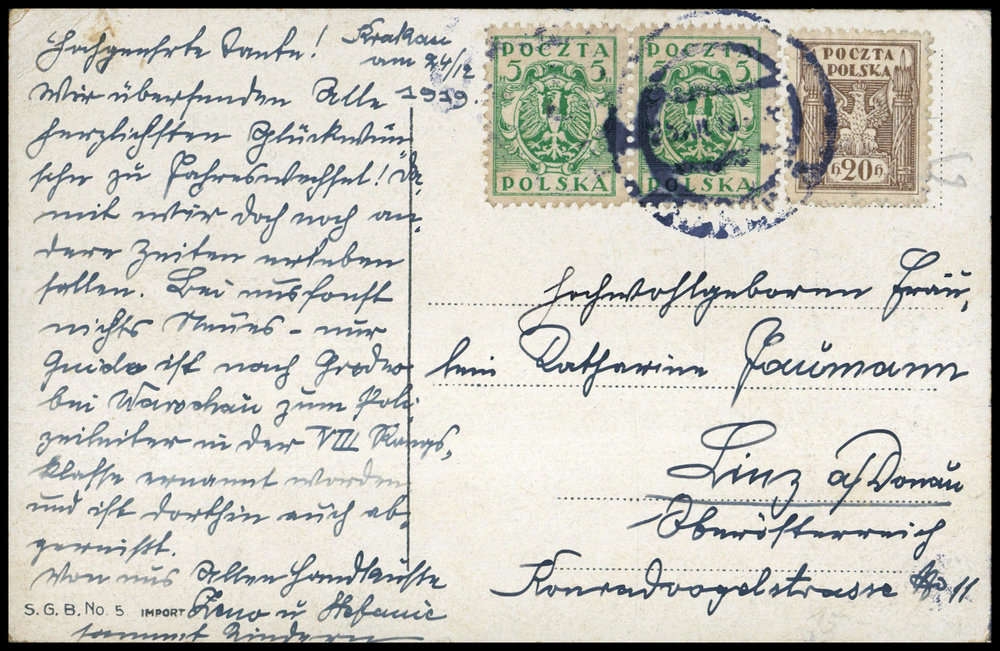 Hochgeehrte Tante! Krakau
am 24/12
1919.
Wir übersenden Alle
herzlichsten Glückwün-
sche zu Jahreswechsel! Da-
mit wir doch noch an-
dere Zeiten erleben
sollen. Bei uns sonst
nichts Neues – nur
Guido ist nach Grodno
bei Warschau zum Poli-
zeileiter in der VIII Rangs-
klasse ernannt worden
und ist dorthin auch ab-
gereist.
Von uns Allen Handküsse
Zeno u Stefanie
sammt Kindern
S. G. B. No. 5 IMPORT
POCZTA
5 5
POLSKA
POCZTA
5 5
POLSKA
POCZTA
POLSKA
20
Hochwohlgeboren Fräu-
lein Katharine Jaumann
Linz a/Donau
Oberösterreich
Konradvogelstrasse No 11